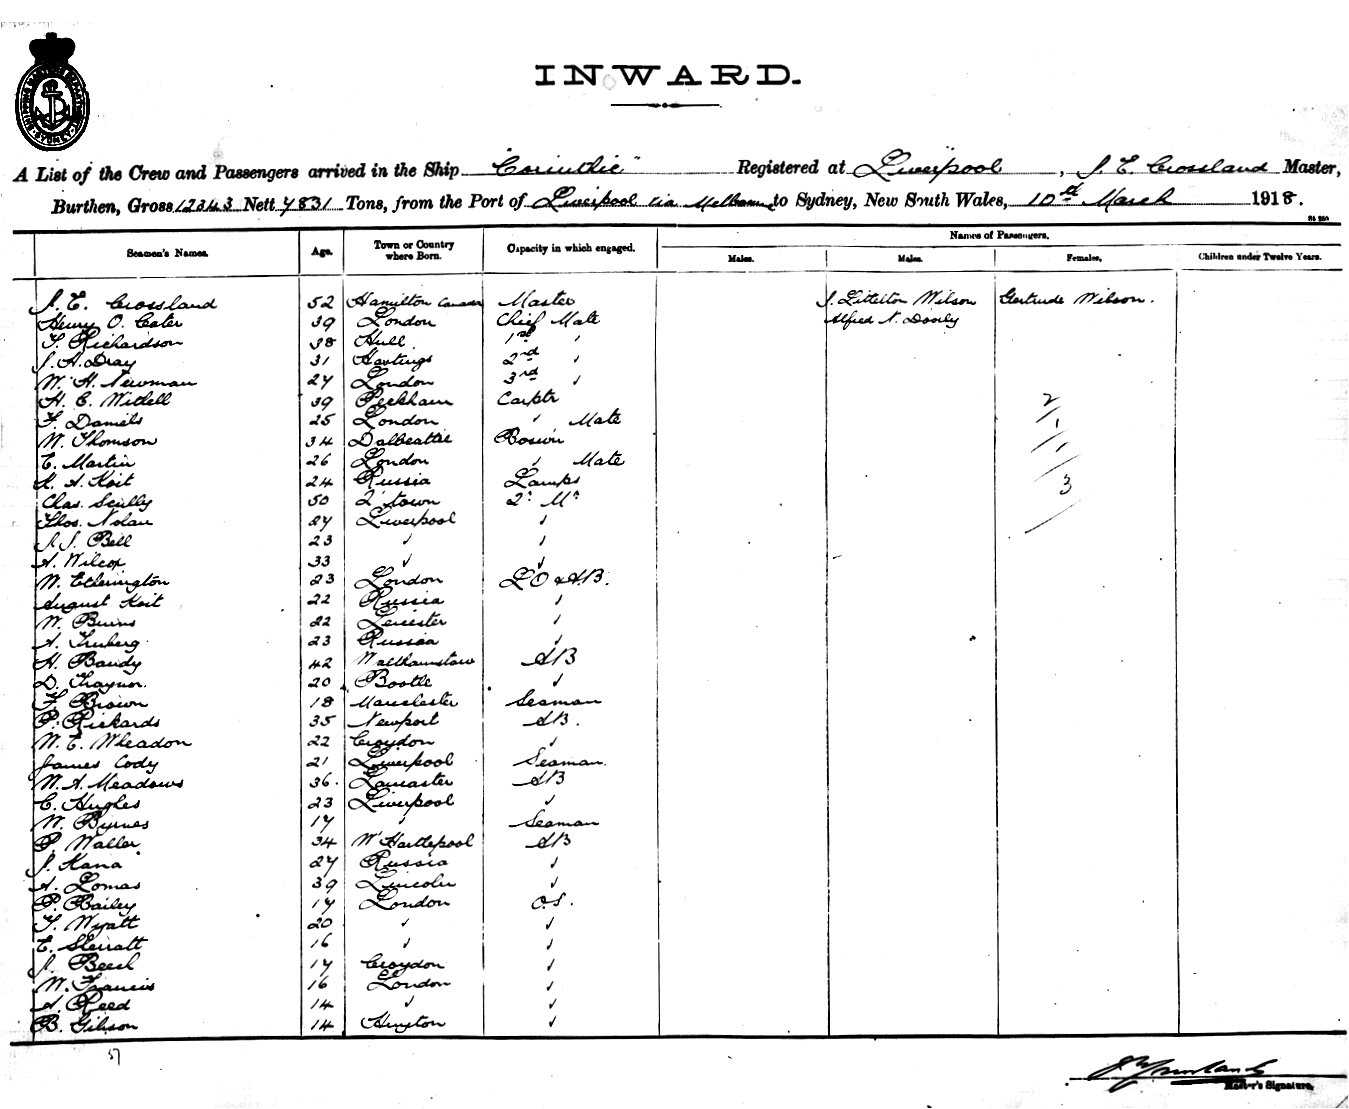 INWARD.
A List of the Crew and Passengers arrived in the Ship "Corinthic" Registered at Liverpool, J. E. Crossland Master,
Burthen, Gross 12343 Nett 7831 Tons, from the Port of Liverpool via Melbourne to Sydney, New South Wales, 10th March 1918.
Seamen's Names. Age. Town or Country where Born. Capacity in which engaged. Names of Passengers.
Males. Males. Females. Children under Twelve Years.
J. E. Crossland 52 Hamilton Canada Master J. Littelton Wilson Gertrude Wilson.
Henry O. Cater 39 London Chief Mate Alfred N. Dooly
T. Richardson 38 Hull 1st "
J. H. Dray 31 Hastings 2nd "
W. H. Newman 27 London 3rd "
H. C. Witlell 39 Peckham Carptr 2
F. Daniels 25 London " Mate 1
W. Thomson 34 Dalbeattie Boswn 1
E. Martin 26 London " Mate
K. A. Koit 24 Russia Lamps 3
Chas. Scully 50 Q'town Q. Mr
Thos. Nolan 27 Liverpool "
J. J. Bell 23 " "
A. Wilcox 33 " "
W. Etherington 23 London LO & AB.
August Koit 22 Russia "
W. Burns 22 Leicester "
A. Truberg 23 Russia "
H. Bandy 42 Walthamstow AB
D. Traynor. 20 Bootle "
F. Brown 18 Manchester Seaman
P. Rickards 35 Newport AB.
W. E. Wheadon 22 Croydon "
James Cody 21 Liverpool Seaman.
W. A. Meadows 36. Lancaster AB
C. Hughes 23 Liverpool "
W. Byrnes 17 " Seaman
P. Waller 34 W Hartlepool AB
J. Kana 27 Russia "
A. Lomas 39 Lincoln "
P. Bailey 17 London O.S.
T. Wyatt 20 " "
E. Sterratt 16 " "
J. Beech 17 Croydon "
W. Francis 16 London "
A. Reed 14 " "
B. Gibson 14 "
37
Master's Signature.